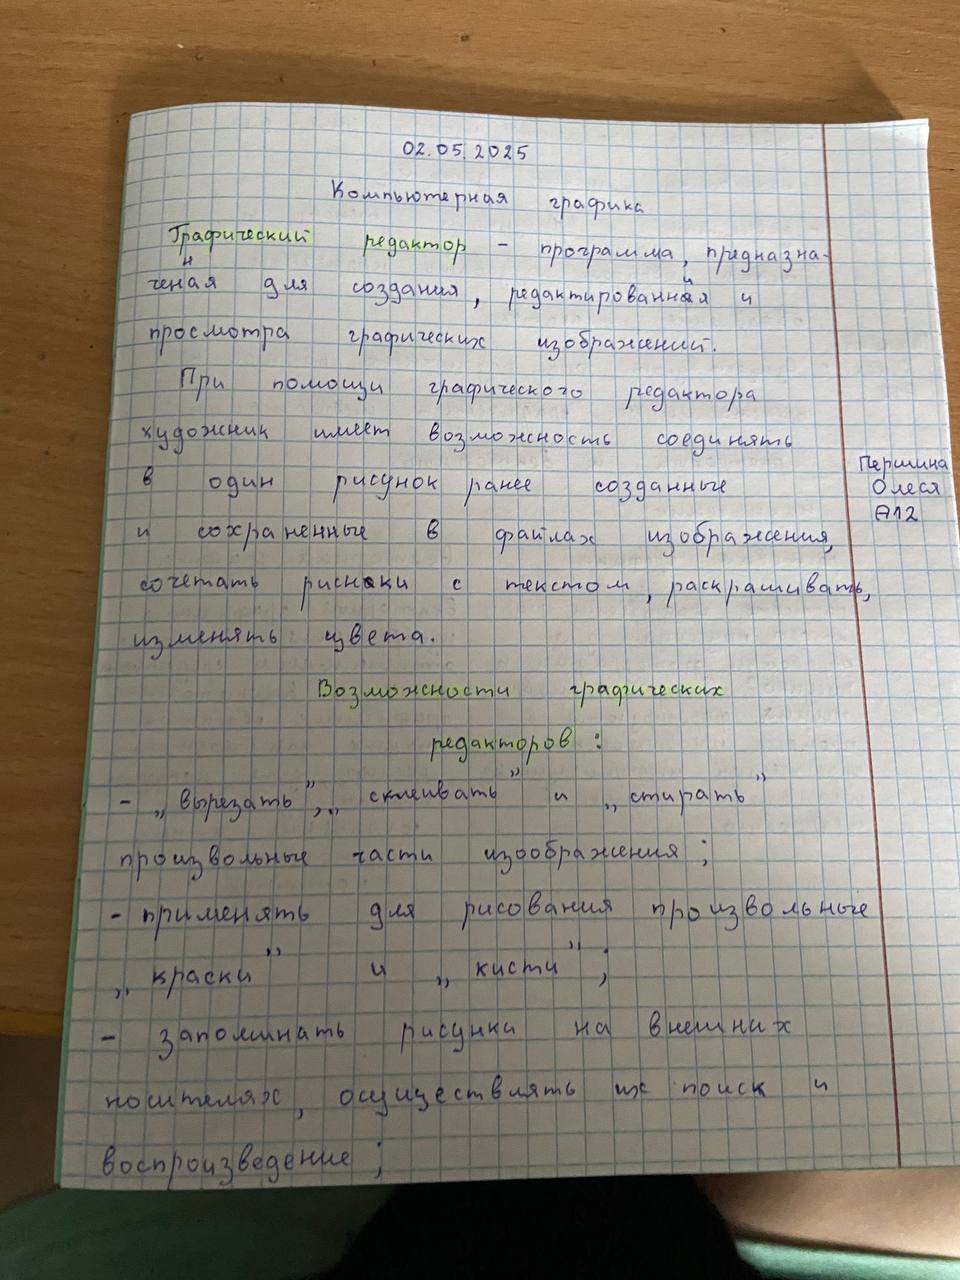 02.05.2025
Компьютерная графика
Графический редактор - программа, предназна-
ченная для создания, редактирования и
просмотра графических изображений.
При помощи графического редактора
художник имеет возможность соединять
в один рисунок ранее созданные
и сохраненные в файлах изображения,
сочетать риснки с текстом, раскрашивать,
изменять цвета.
Першина
Олеся
А12
Возможности графических
редакторов:
- „вырезать", „склеивать" и „стирать"
произвольные части изоображения;
- применять для рисования произвольные
„краски" и „кисти";
- запоминать рисунки на внешних
носителях, осуществлять их поиск и
воспроизведение;